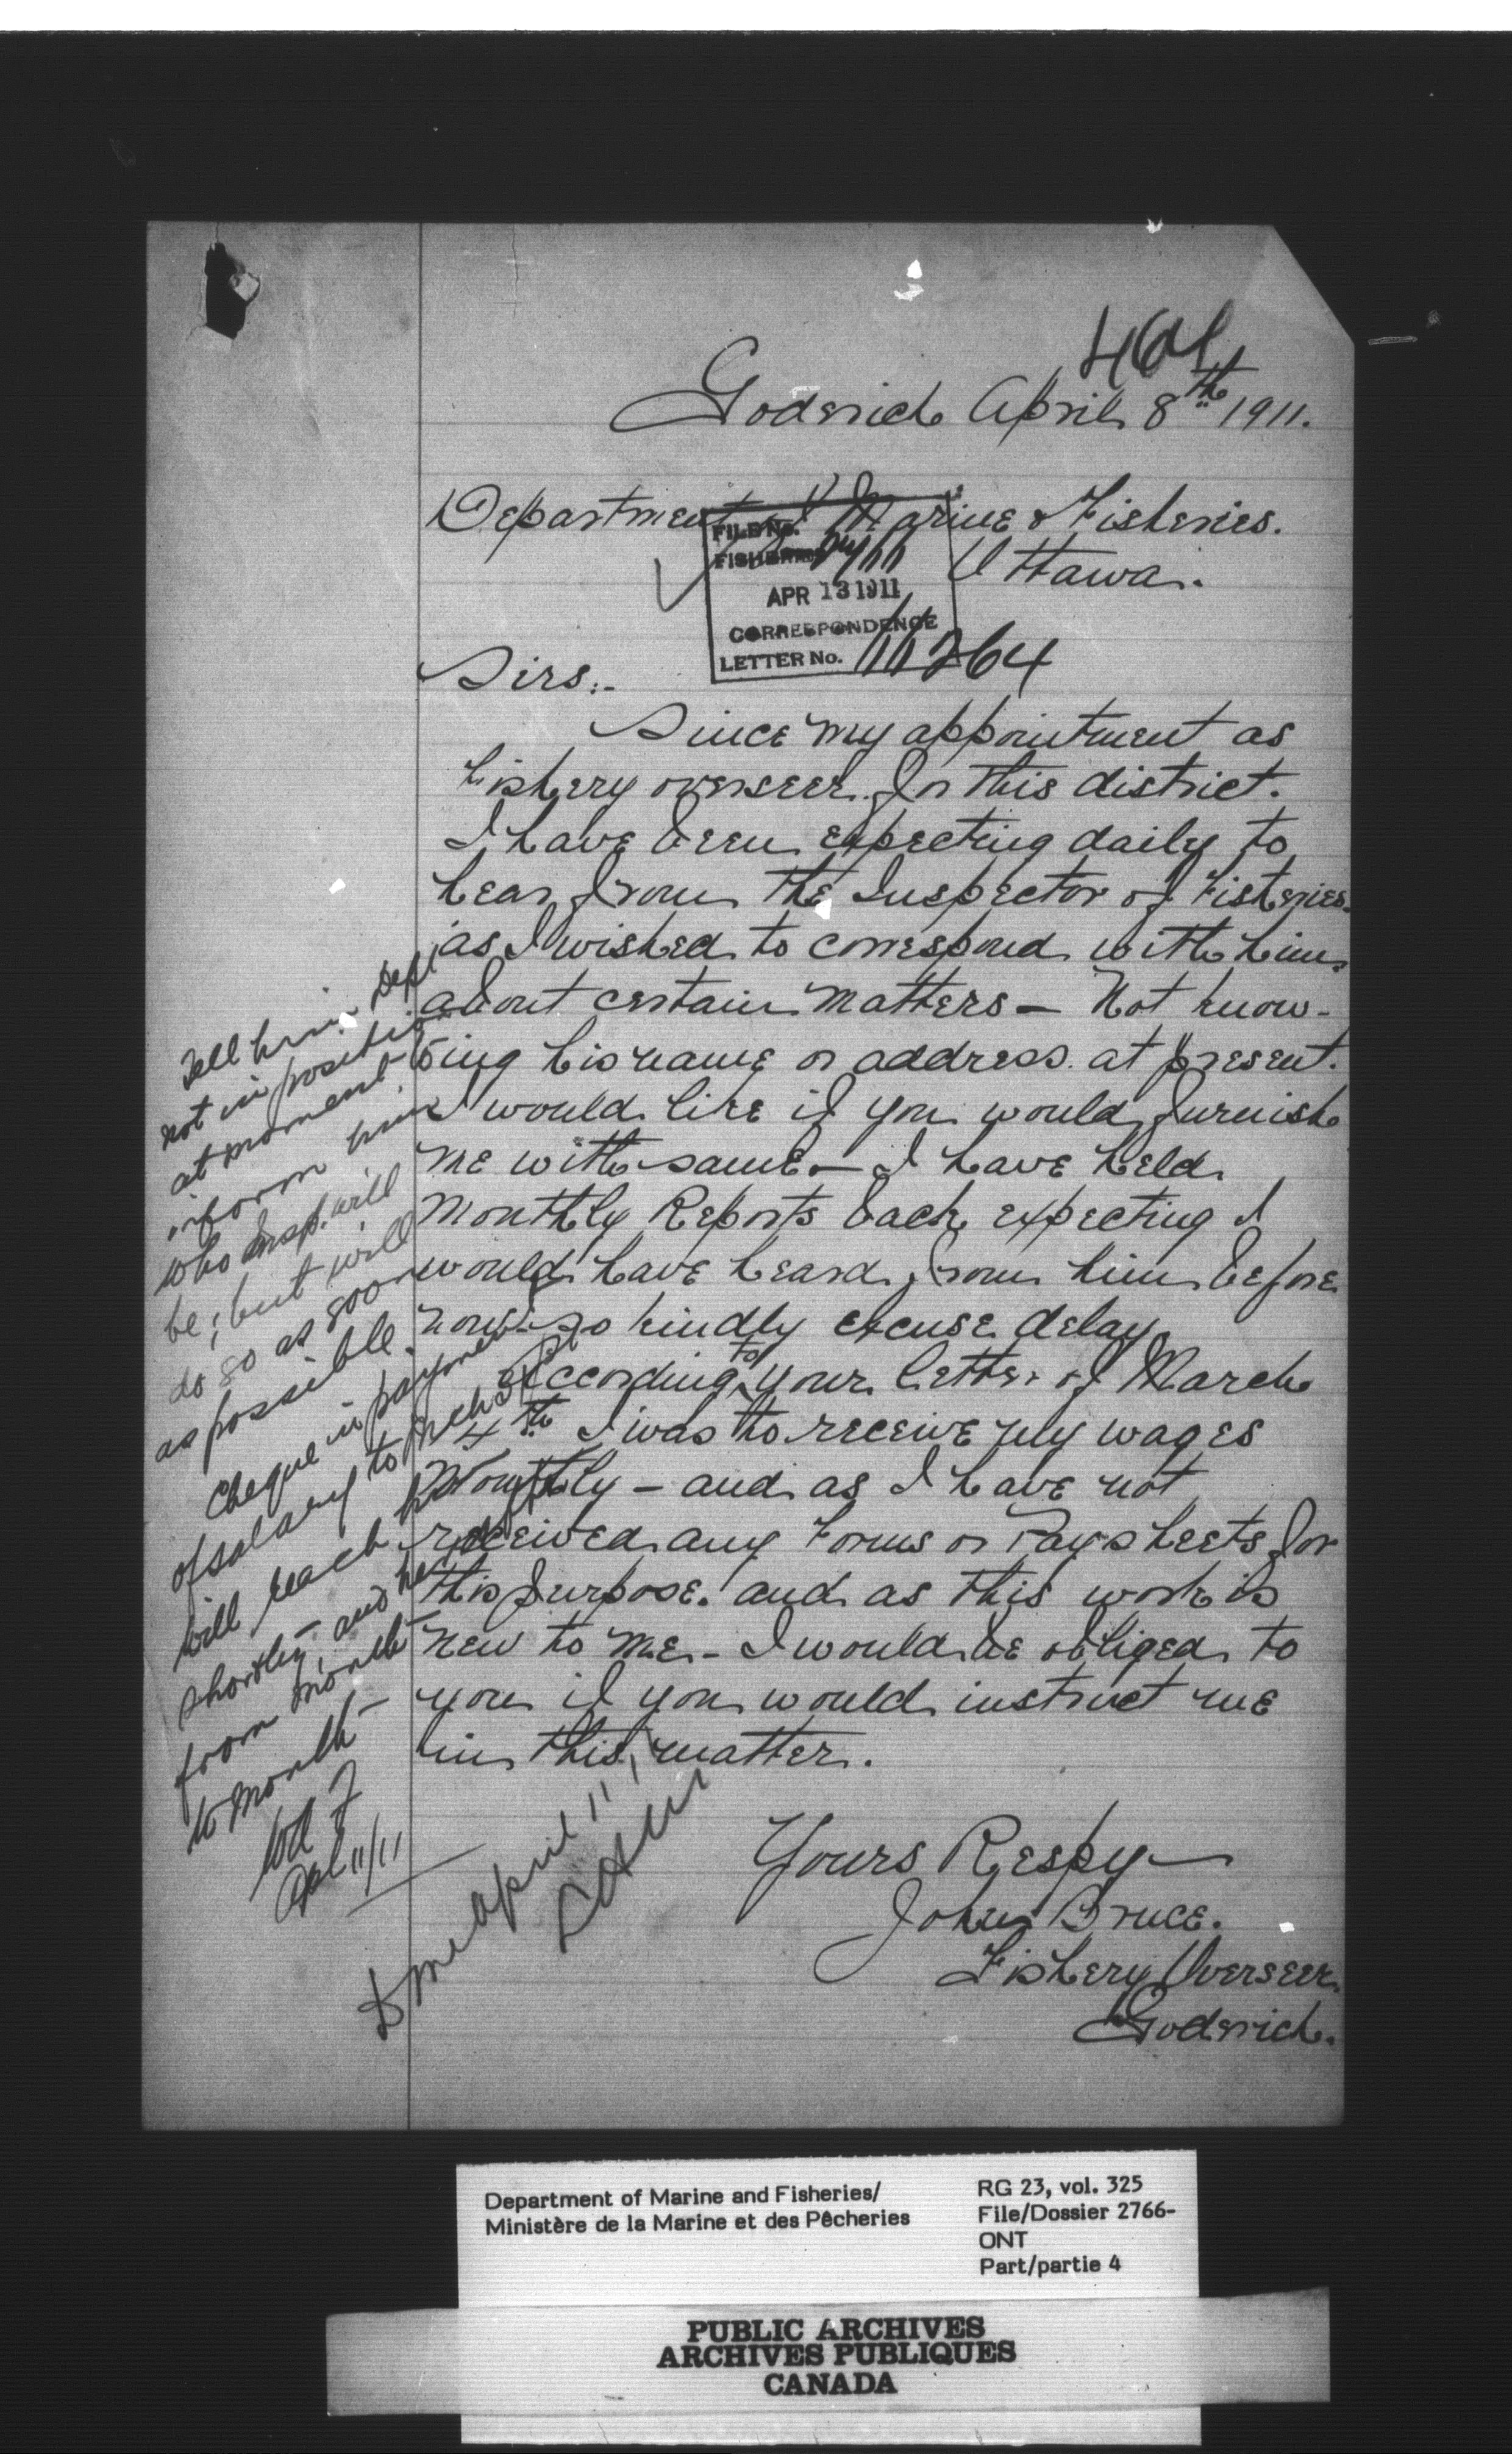 461
Goderich April 8th 1911.
Department of Marine & Fisheries.
Ottawa.
FILE No.
FISHERIES
APR 13 1911
CORRESPONDENCE
LETTER No. 11264
Sirs:-
Since my appointment as
Fishery overseer for this district.
I have been expecting daily to
hear from the Inspector of Fisheries
as I wished to correspond with him
about certain matters - Not know-
ing his name or address at present.
I would like if you would furnish
me with same - I have held
Monthly Reports back expecting I
would have heard from him before
now - so kindly excuse delay
According to your letter of March
4th I was to receive my wages
Monthly - and as I have not
received any Forms or Paysheets for
this purpose. and as this work is
new to me - I would be obliged to
you if you would instruct me
in this matter.
Yours Respy
John Bruce.
Fishery Overseer
Goderich.
Tell him Dept
not in position
at moment to
inform him
who Insp. will
be; but will
do so as soon
as possible.
Cheque in payment
of salary to Mch 31st
will reach him
shortly - and
from month
to month -
Apl 11/11
April 11
Department of Marine and Fisheries/
Ministère de la Marine et des Pêcheries
RG 23, vol. 325
File/Dossier 2766-
ONT
Part/partie 4
PUBLIC ARCHIVES
ARCHIVES PUBLIQUES
CANADA